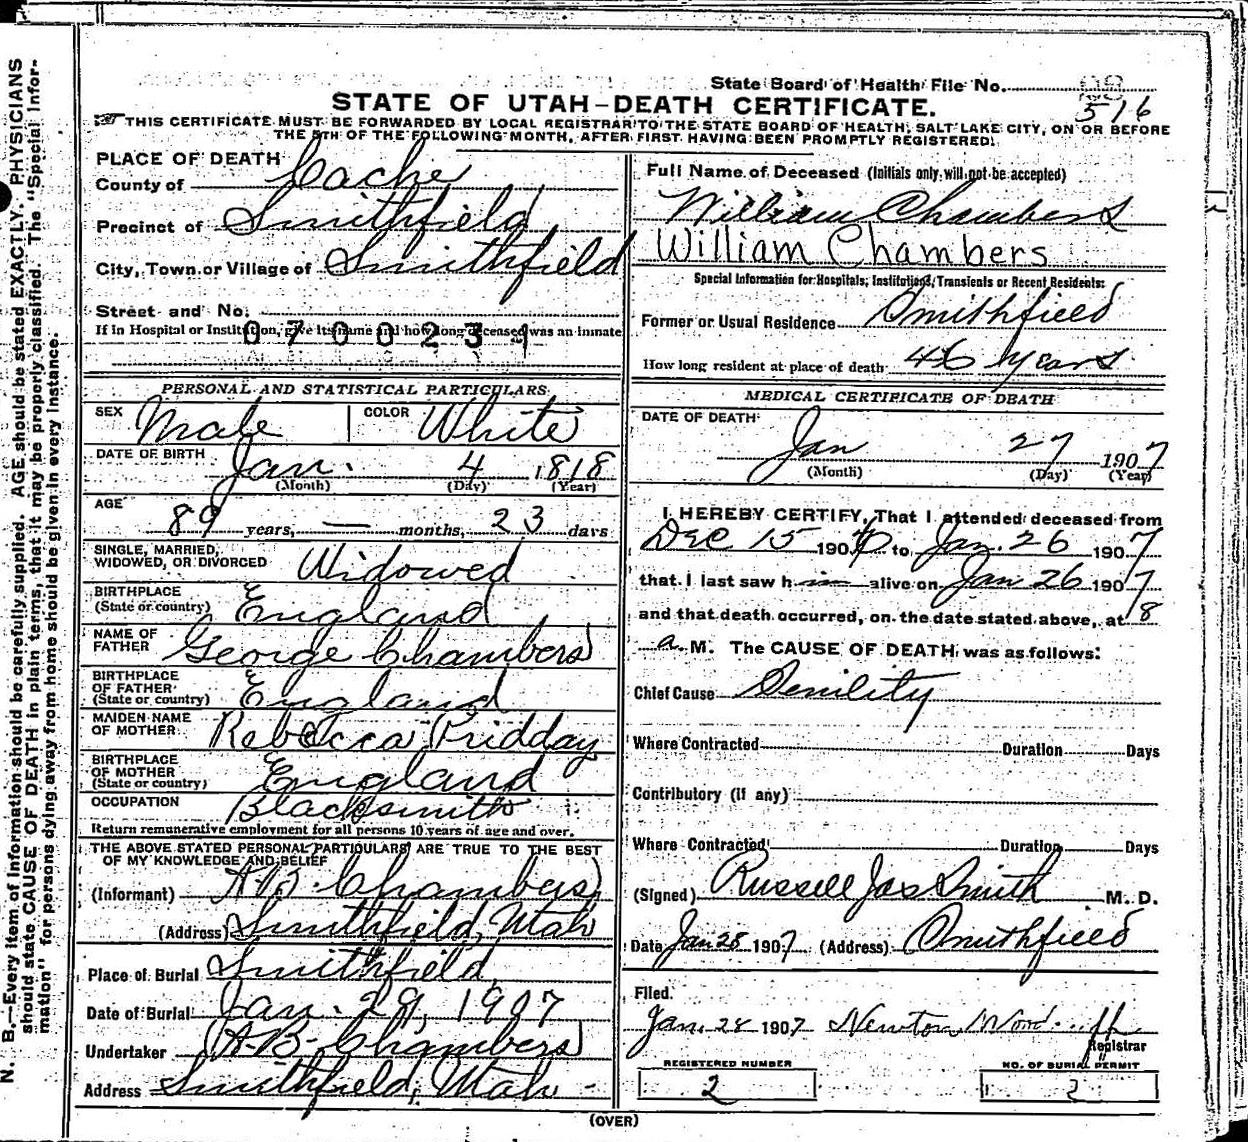 State Board of Health File No.
516
STATE OF UTAH–DEATH CERTIFICATE.
THIS CERTIFICATE MUST BE FORWARDED BY LOCAL REGISTRAR TO THE STATE BOARD OF HEALTH, SALT LAKE CITY, ON OR BEFORE
THE 5TH OF THE FOLLOWING MONTH, AFTER FIRST HAVING BEEN PROMPTLY REGISTERED.
PLACE OF DEATH
County of Cache
Precinct of Smithfield
City, Town or Village of Smithfield
Street and No.
If in Hospital or Institution, give its name and how long deceased was an inmate
0700231
PERSONAL AND STATISTICAL PARTICULARS
SEX Male COLOR White
DATE OF BIRTH Jan. 4 1818
(Month) (Day) (Year)
AGE 89 years, — months, 23 days
SINGLE, MARRIED,
WIDOWED, OR DIVORCED Widowed
BIRTHPLACE
(State or country) England
NAME OF
FATHER George Chambers
BIRTHPLACE
OF FATHER
(State or country) England
MAIDEN NAME
OF MOTHER Rebecca Pridday
BIRTHPLACE
OF MOTHER
(State or country) England
OCCUPATION Blacksmith
Return remunerative employment for all persons 10 years of age and over.
THE ABOVE STATED PERSONAL PARTICULARS ARE TRUE TO THE BEST
OF MY KNOWLEDGE AND BELIEF
(Informant) A.B. Chambers
(Address) Smithfield, Utah
Place of Burial Smithfield
Date of Burial Jan. 29, 1907
Undertaker A.B. Chambers
Address Smithfield, Utah
Full Name of Deceased (Initials only will not be accepted)
William Chambers
William Chambers
Special Information for Hospitals, Institutions, Transients or Recent Residents:
Former or Usual Residence Smithfield
How long resident at place of death 46 years
MEDICAL CERTIFICATE OF DEATH
DATE OF DEATH
Jan 27 1907
(Month) (Day) (Year)
I HEREBY CERTIFY, That I attended deceased from
Dec 15 190 to Jan. 26 1907
that I last saw him alive on Jan 26 1907
and that death occurred, on the date stated above, at 8
a. M. The CAUSE OF DEATH was as follows:
Chief Cause Senility
Where Contracted Duration Days
Contributory (if any)
Where Contracted Duration Days
(Signed) Russell Jas Smith M. D.
Date Jan 28 1907 (Address) Smithfield
Filed.
Jan. 28 1907 Newton Wood
Registrar
REGISTERED NUMBER
2
NO. OF BURIAL PERMIT
2
(OVER)
N. B.—Every item of information should be carefully supplied. AGE should be stated EXACTLY. PHYSICIANS
should state CAUSE OF DEATH in plain terms, that it may be properly classified. The "Special Infor-
mation" for persons dying away from home should be given in every instance.